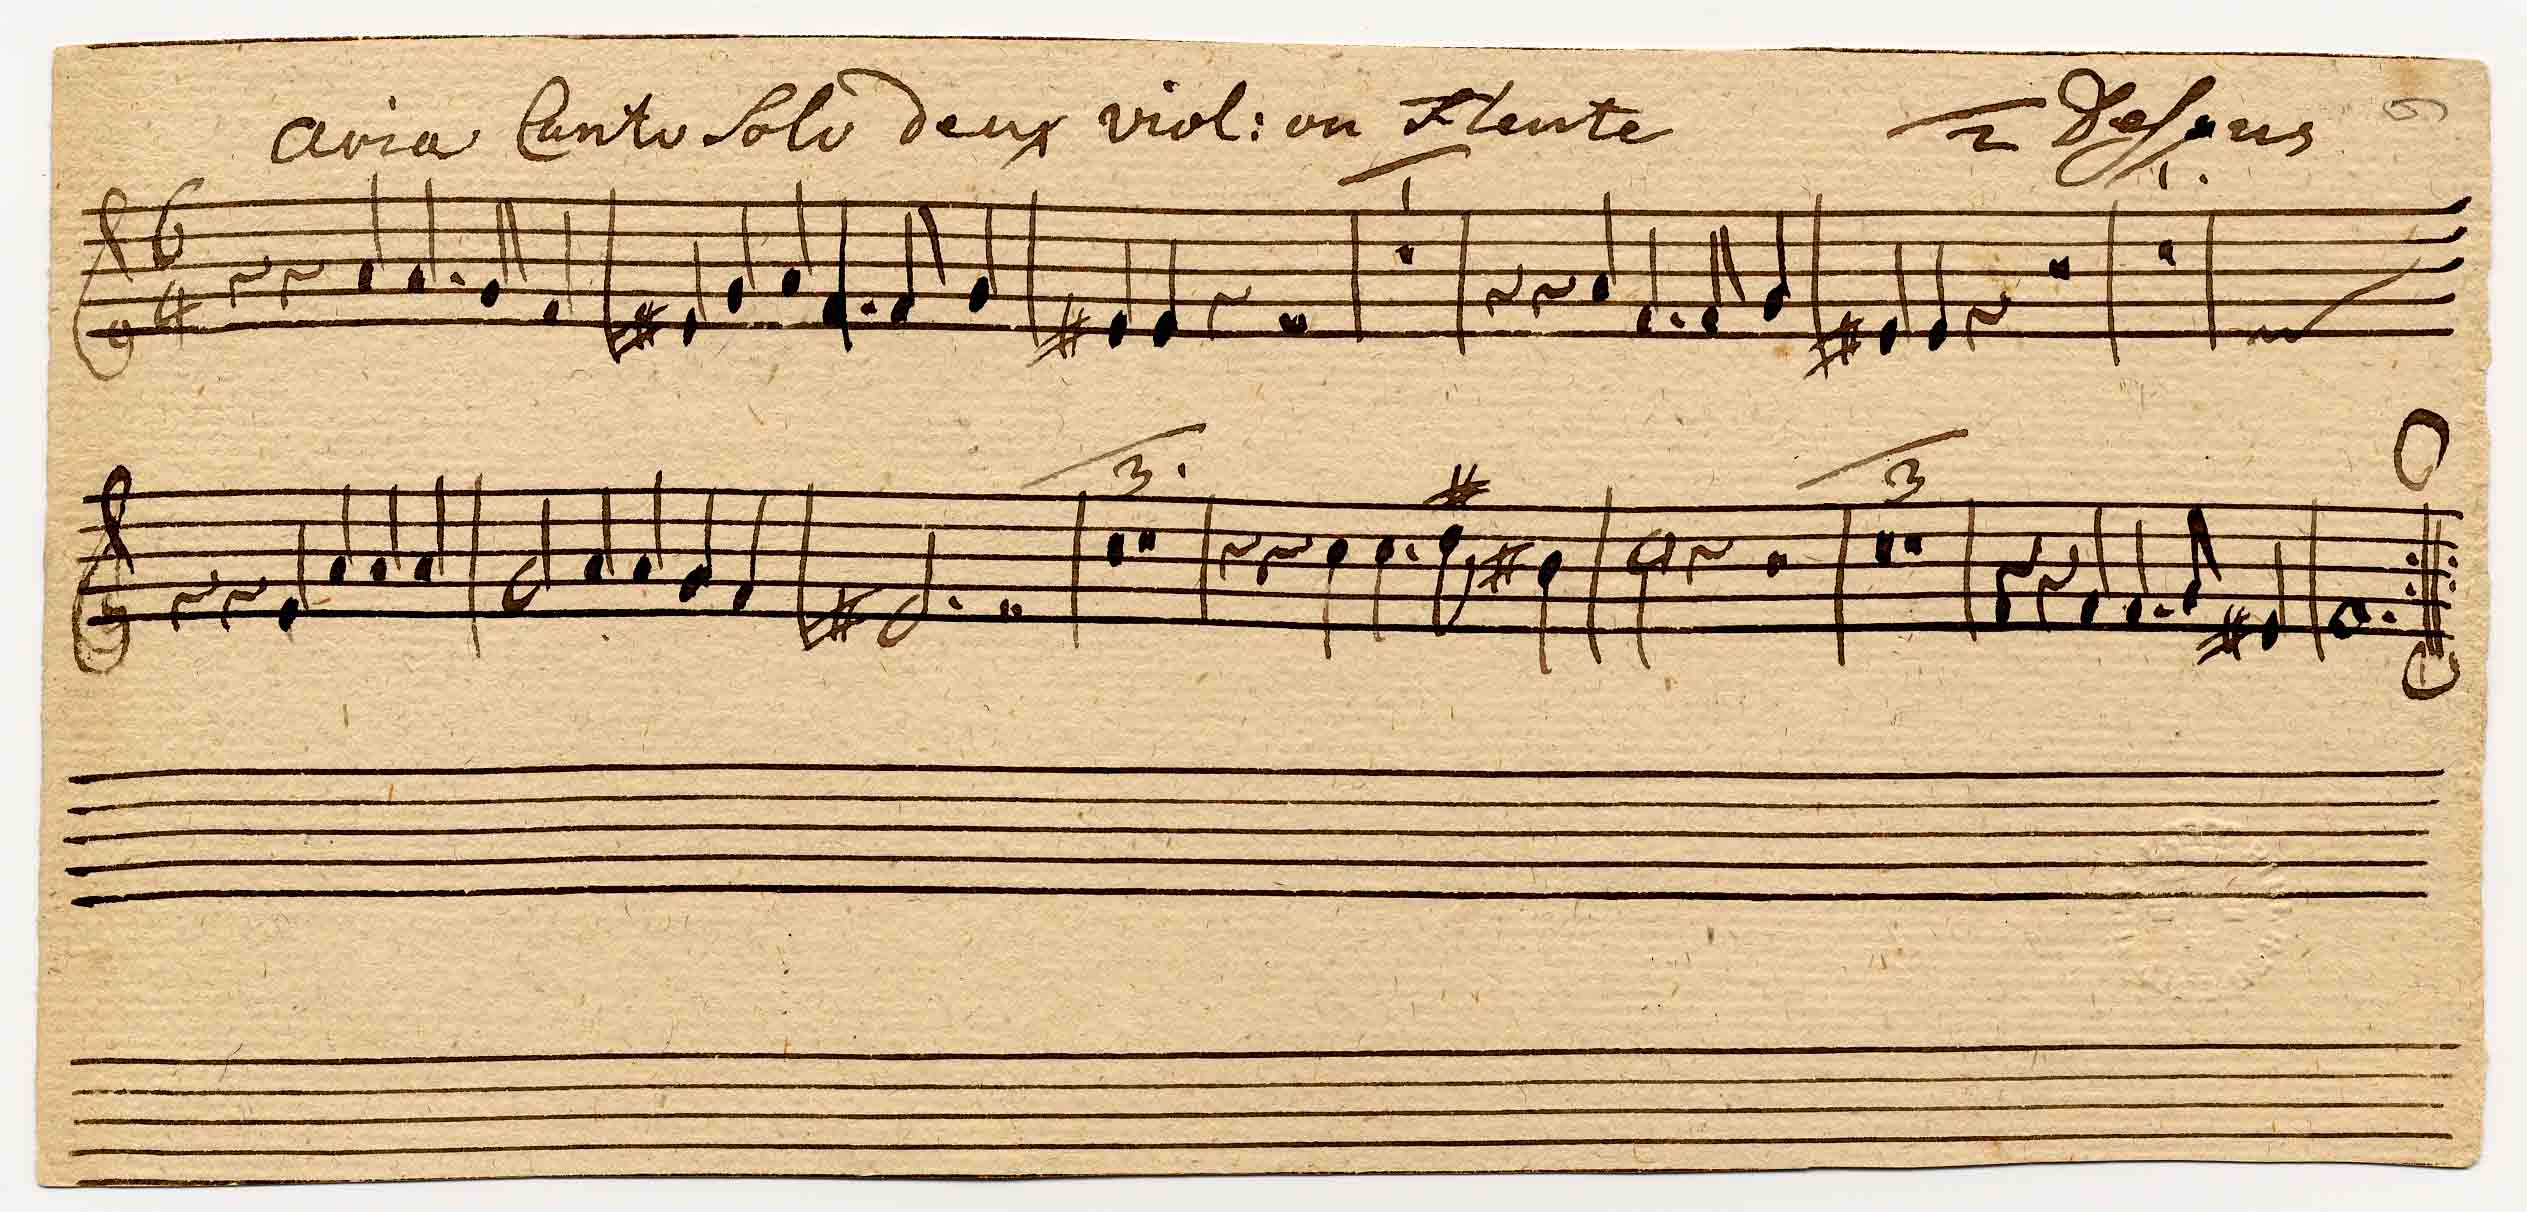 Aria Canto Solo deux viol: ou Fleute 2 Dessus
6
4
1 1.
3. 3